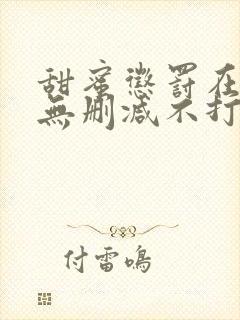 甜蜜懲罰在
無刪減不打
付雷鳴